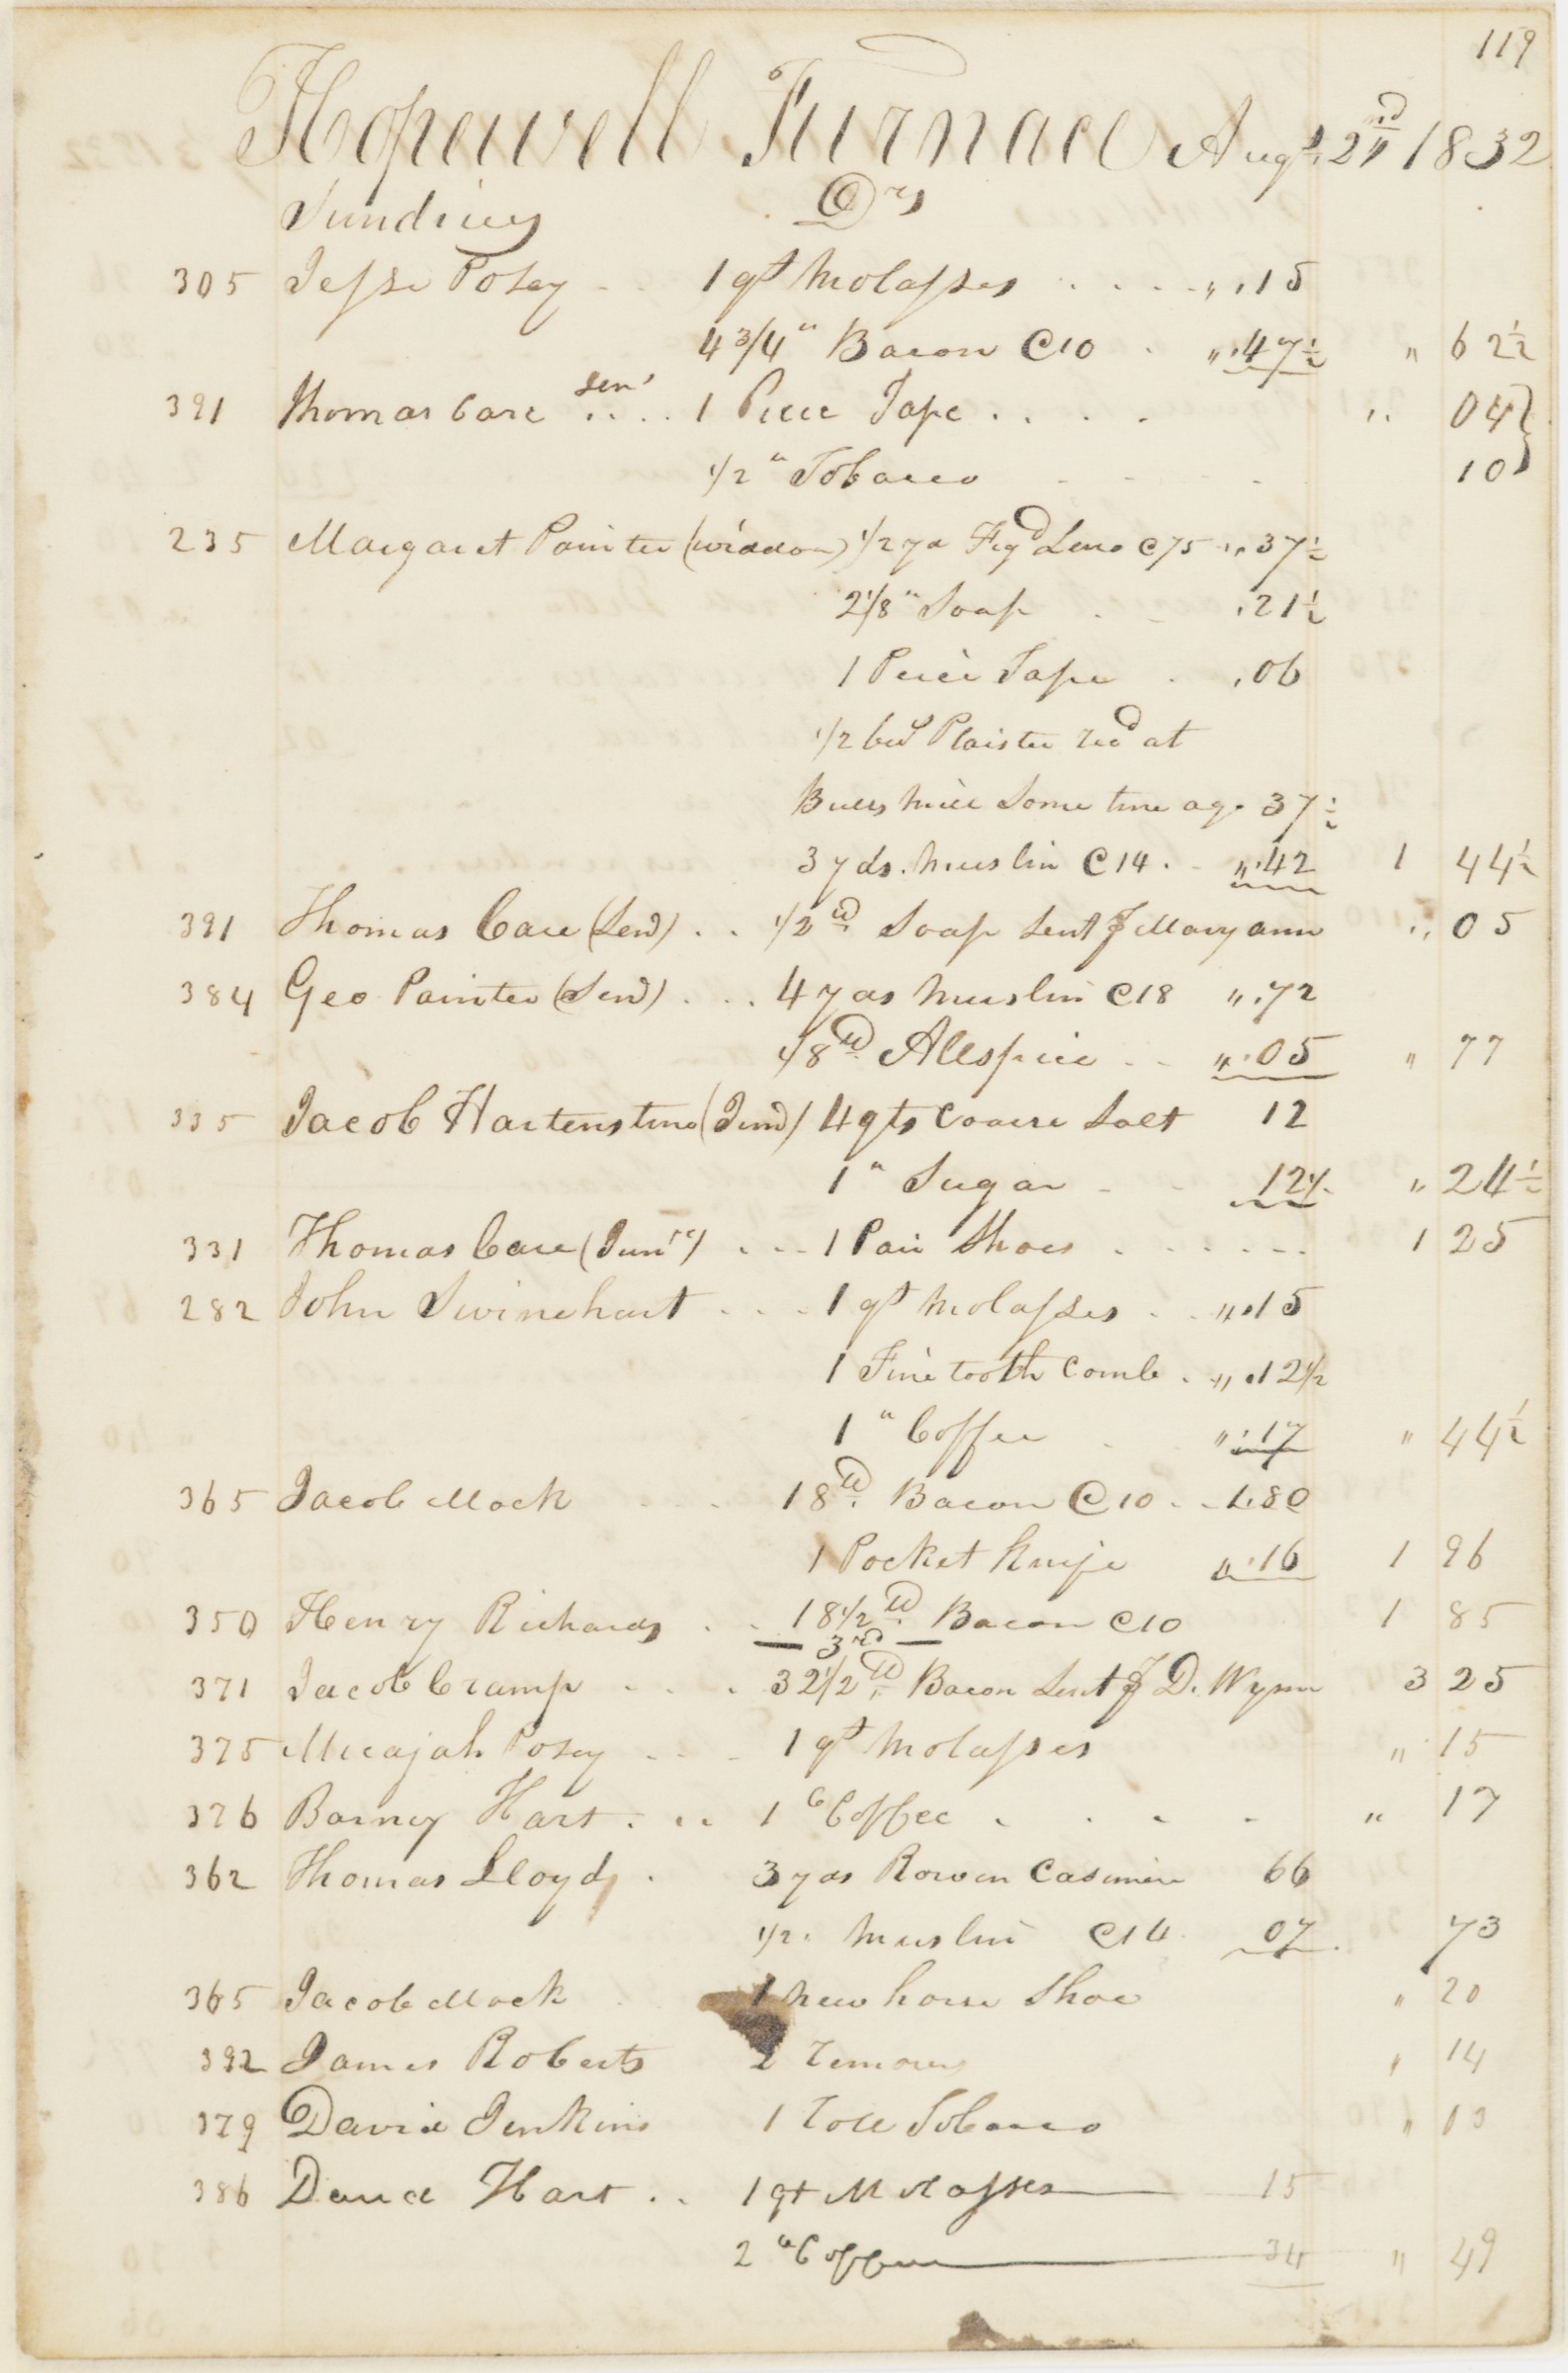 119
Hopewell Furnace Augt. 2nd 1832
Sundries Drs
305 Jesse Posey 1 qt Molasses ,, .15
4 3/4 " Bacon @10 ,, .47½ ,, 62½
391 Thomas Care Senr 1 Piece Tape ,, 04
1/2 " Tobacco 10
235 Margaret Painter (widdow) 1/2 yd Figd Leno @75 ,, 37½
2 1/8 " Soap .21½
1 Peice Tape .06
1/2 bul Plaister recd at
Buers mill Some time ago 37½
3 yds. Muslin @14 ,, .42 1 44½
391 Thomas Care (Senr) 1/2 lb Soap Sent p Maryann ,, 05
384 Geo Painter (Senr) 4 yds Muslin @18 ,, .72
1/8 lb Allspice ,, .05 ,, 77
335 Jacob Hartenstine (Junr) 4 qts Coarse Salt 12
1 " Sugar 12½ ,, 24½
331 Thomas Care (Junr) 1 Pair Shoes 1 25
282 John Swinehart 1 qt Molasses ,, .15
1 Fine tooth Comb ,, .12½
1 " Coffee ,, .17 ,, 44½
365 Jacob Mock 18 lb Bacon @10 1.80
1 Pocket Knife ,, .16 1 96
350 Henry Richards 18 1/2 lb Bacon @10 1 85
— 3rd —
371 Jacob Cramp 32 1/2 lb Bacon Sent p D. Wynn 3 25
375 Micajah Posey 1 qt Molasses ,, 15
376 Barney Hart 1 " Coffee ,, 17
362 Thomas Lloyd 3 yds Rowen Casimere 66
1/2 . Muslin @14 07 73
365 Jacob Mock 1 New horse Shoe ,, 20
392 James Roberts 2 removes ,, 14
379 David Jenkins 1 role Tobacco ,,
386 David Hart 1 qt Molasses 15
2 " Coffee 34 ,, 49